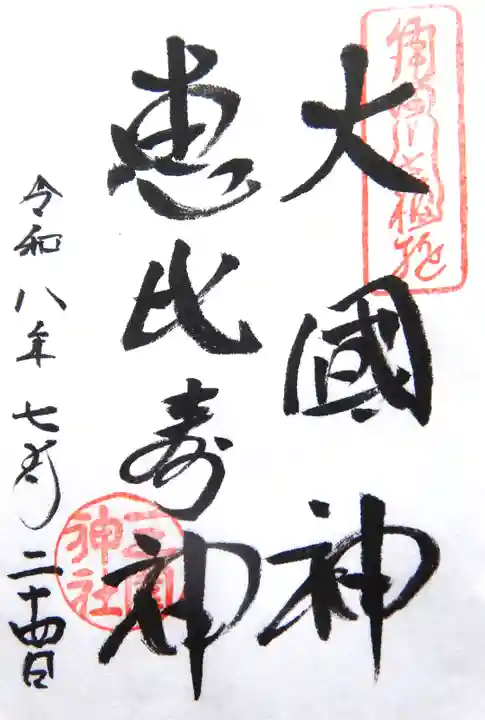 大國神
恵比寿神
三囲神社
令和八年 七月 二十四日